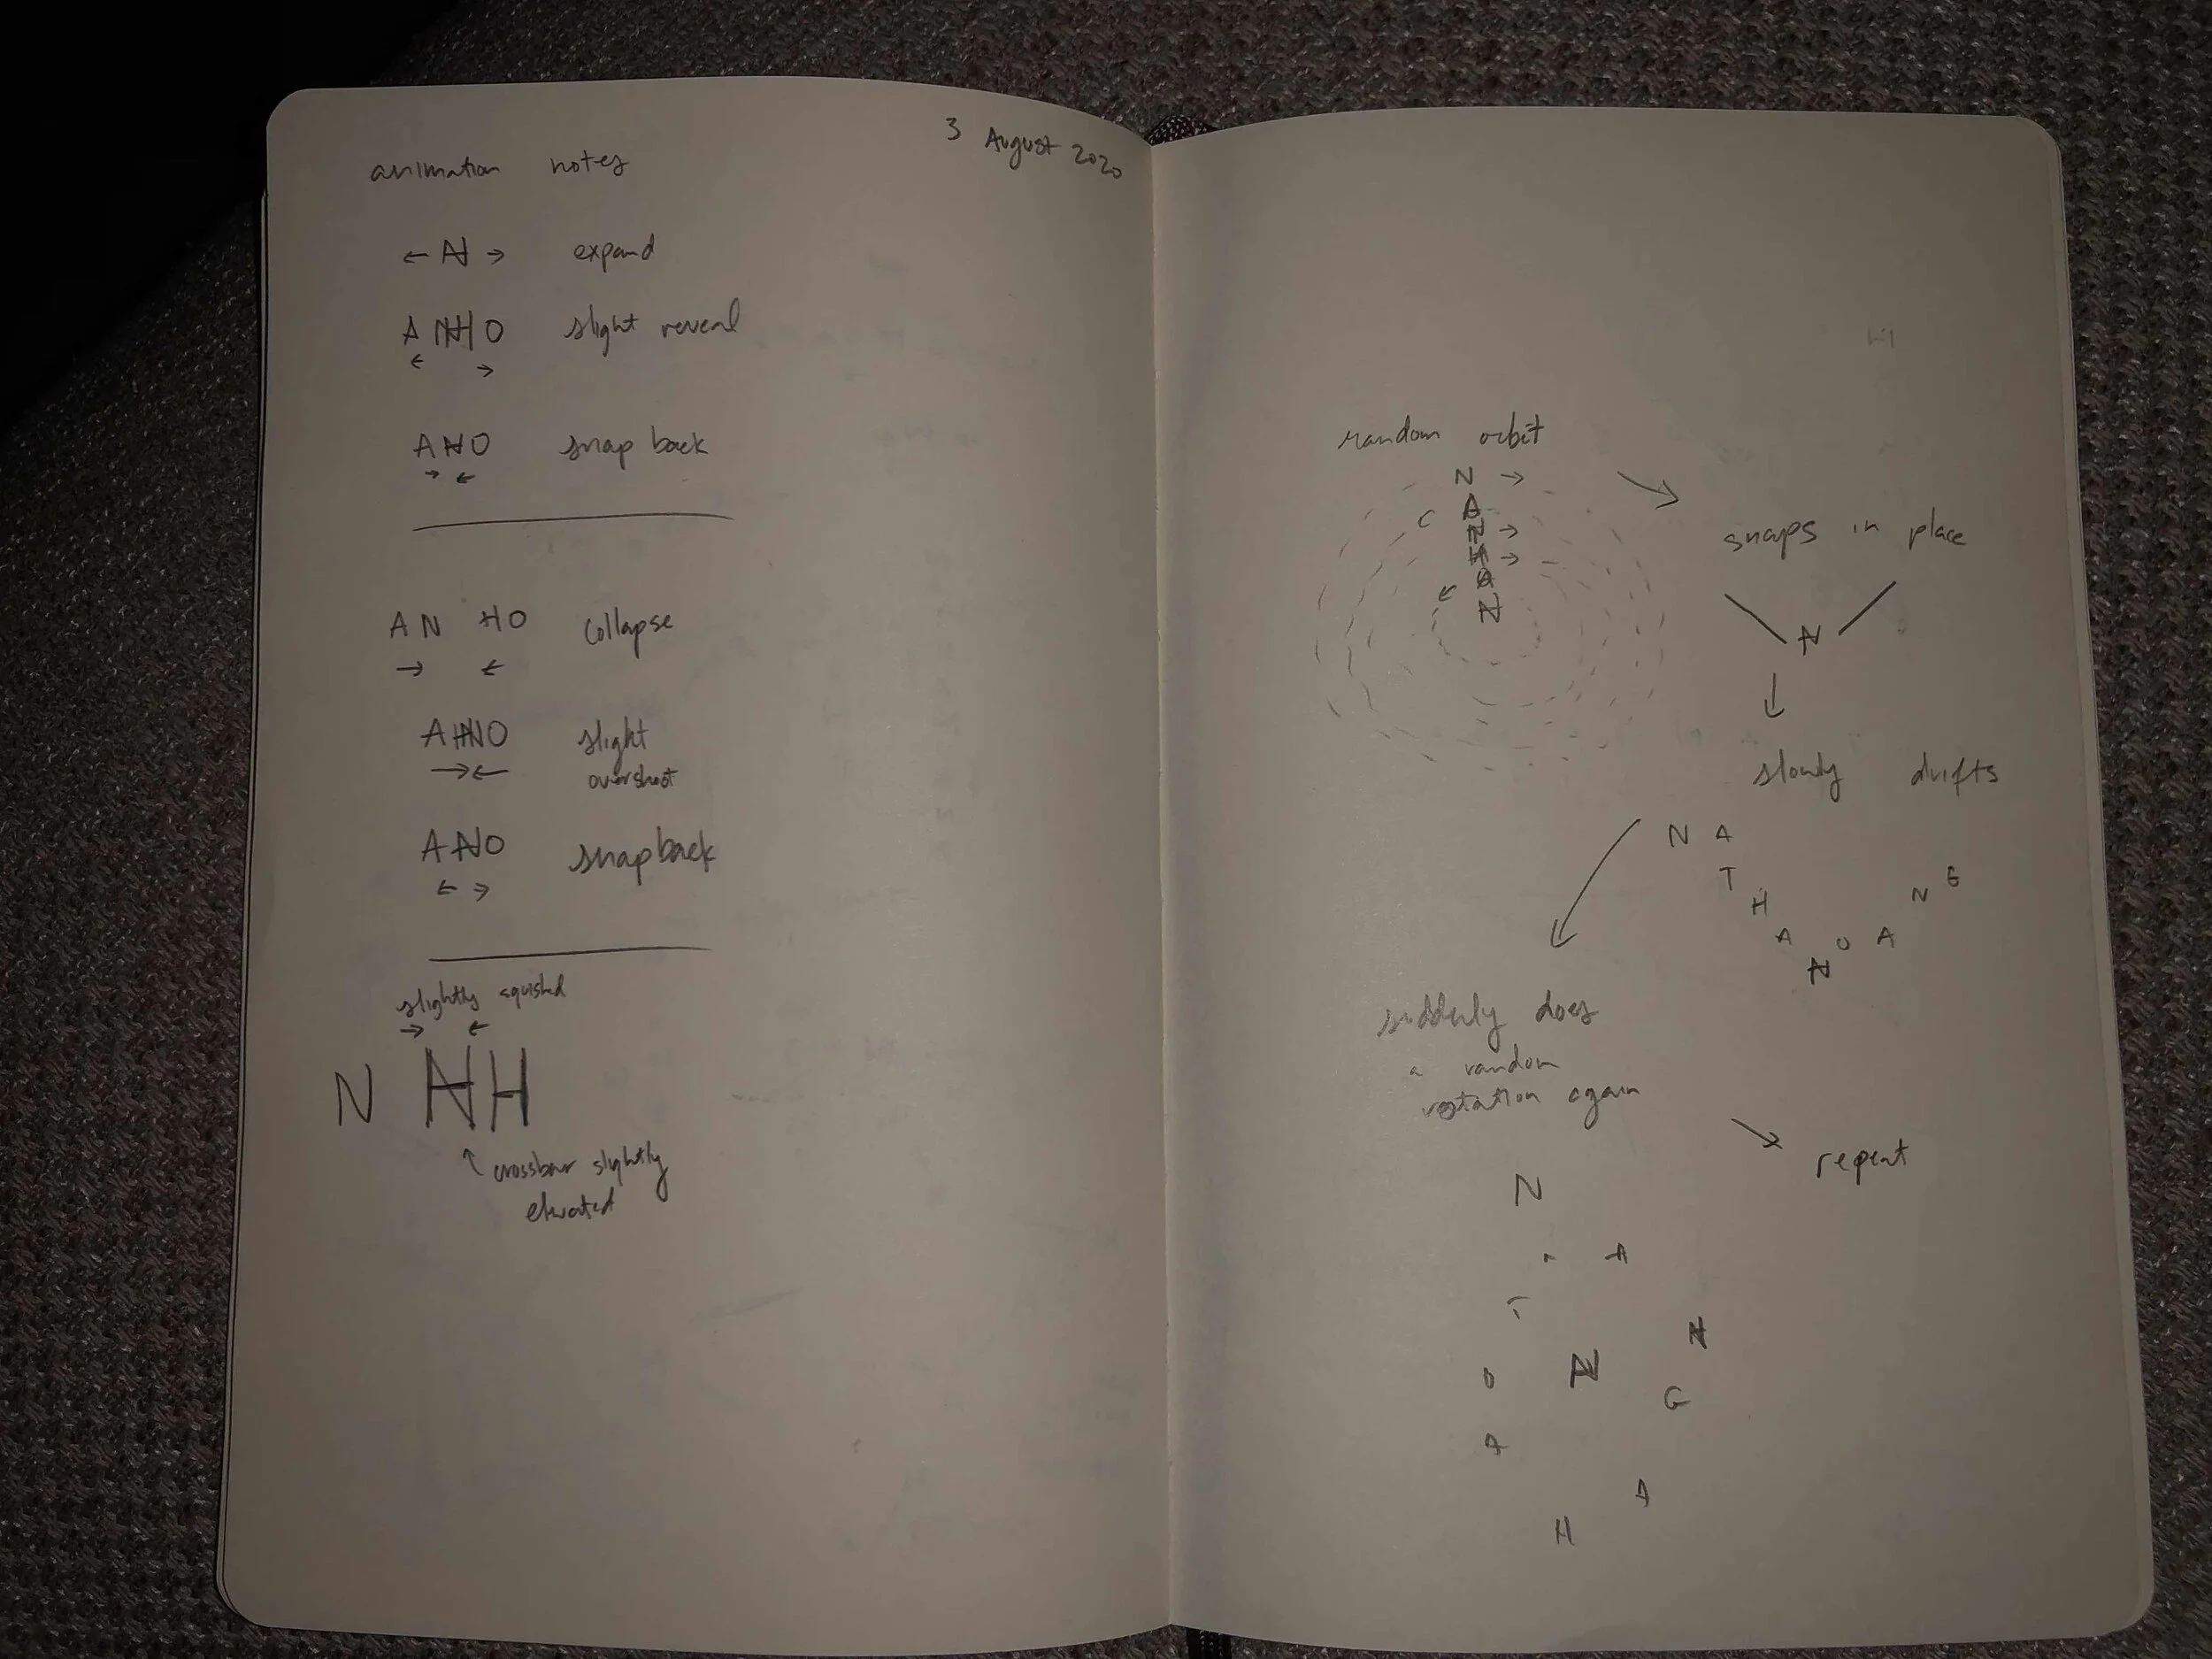 3 August 2020
animation notes
← N → expand
A NH O slight reveal
← →
A N O snap back
→ ←
A N H O collapse
→ ←
A HN O slight
→← overshoot
A N O snap back
← →
slightly squished
→ ←
N N H
↑ crossbar slightly
elevated
random orbit
N →
A
N →
H →
N
snaps in place
N
slowly drifts
N A
T
H
A
N
U
A
N
G
suddenly does
a random
rotation again
repeat
N
A
T
N
U
N
G
A
A
H